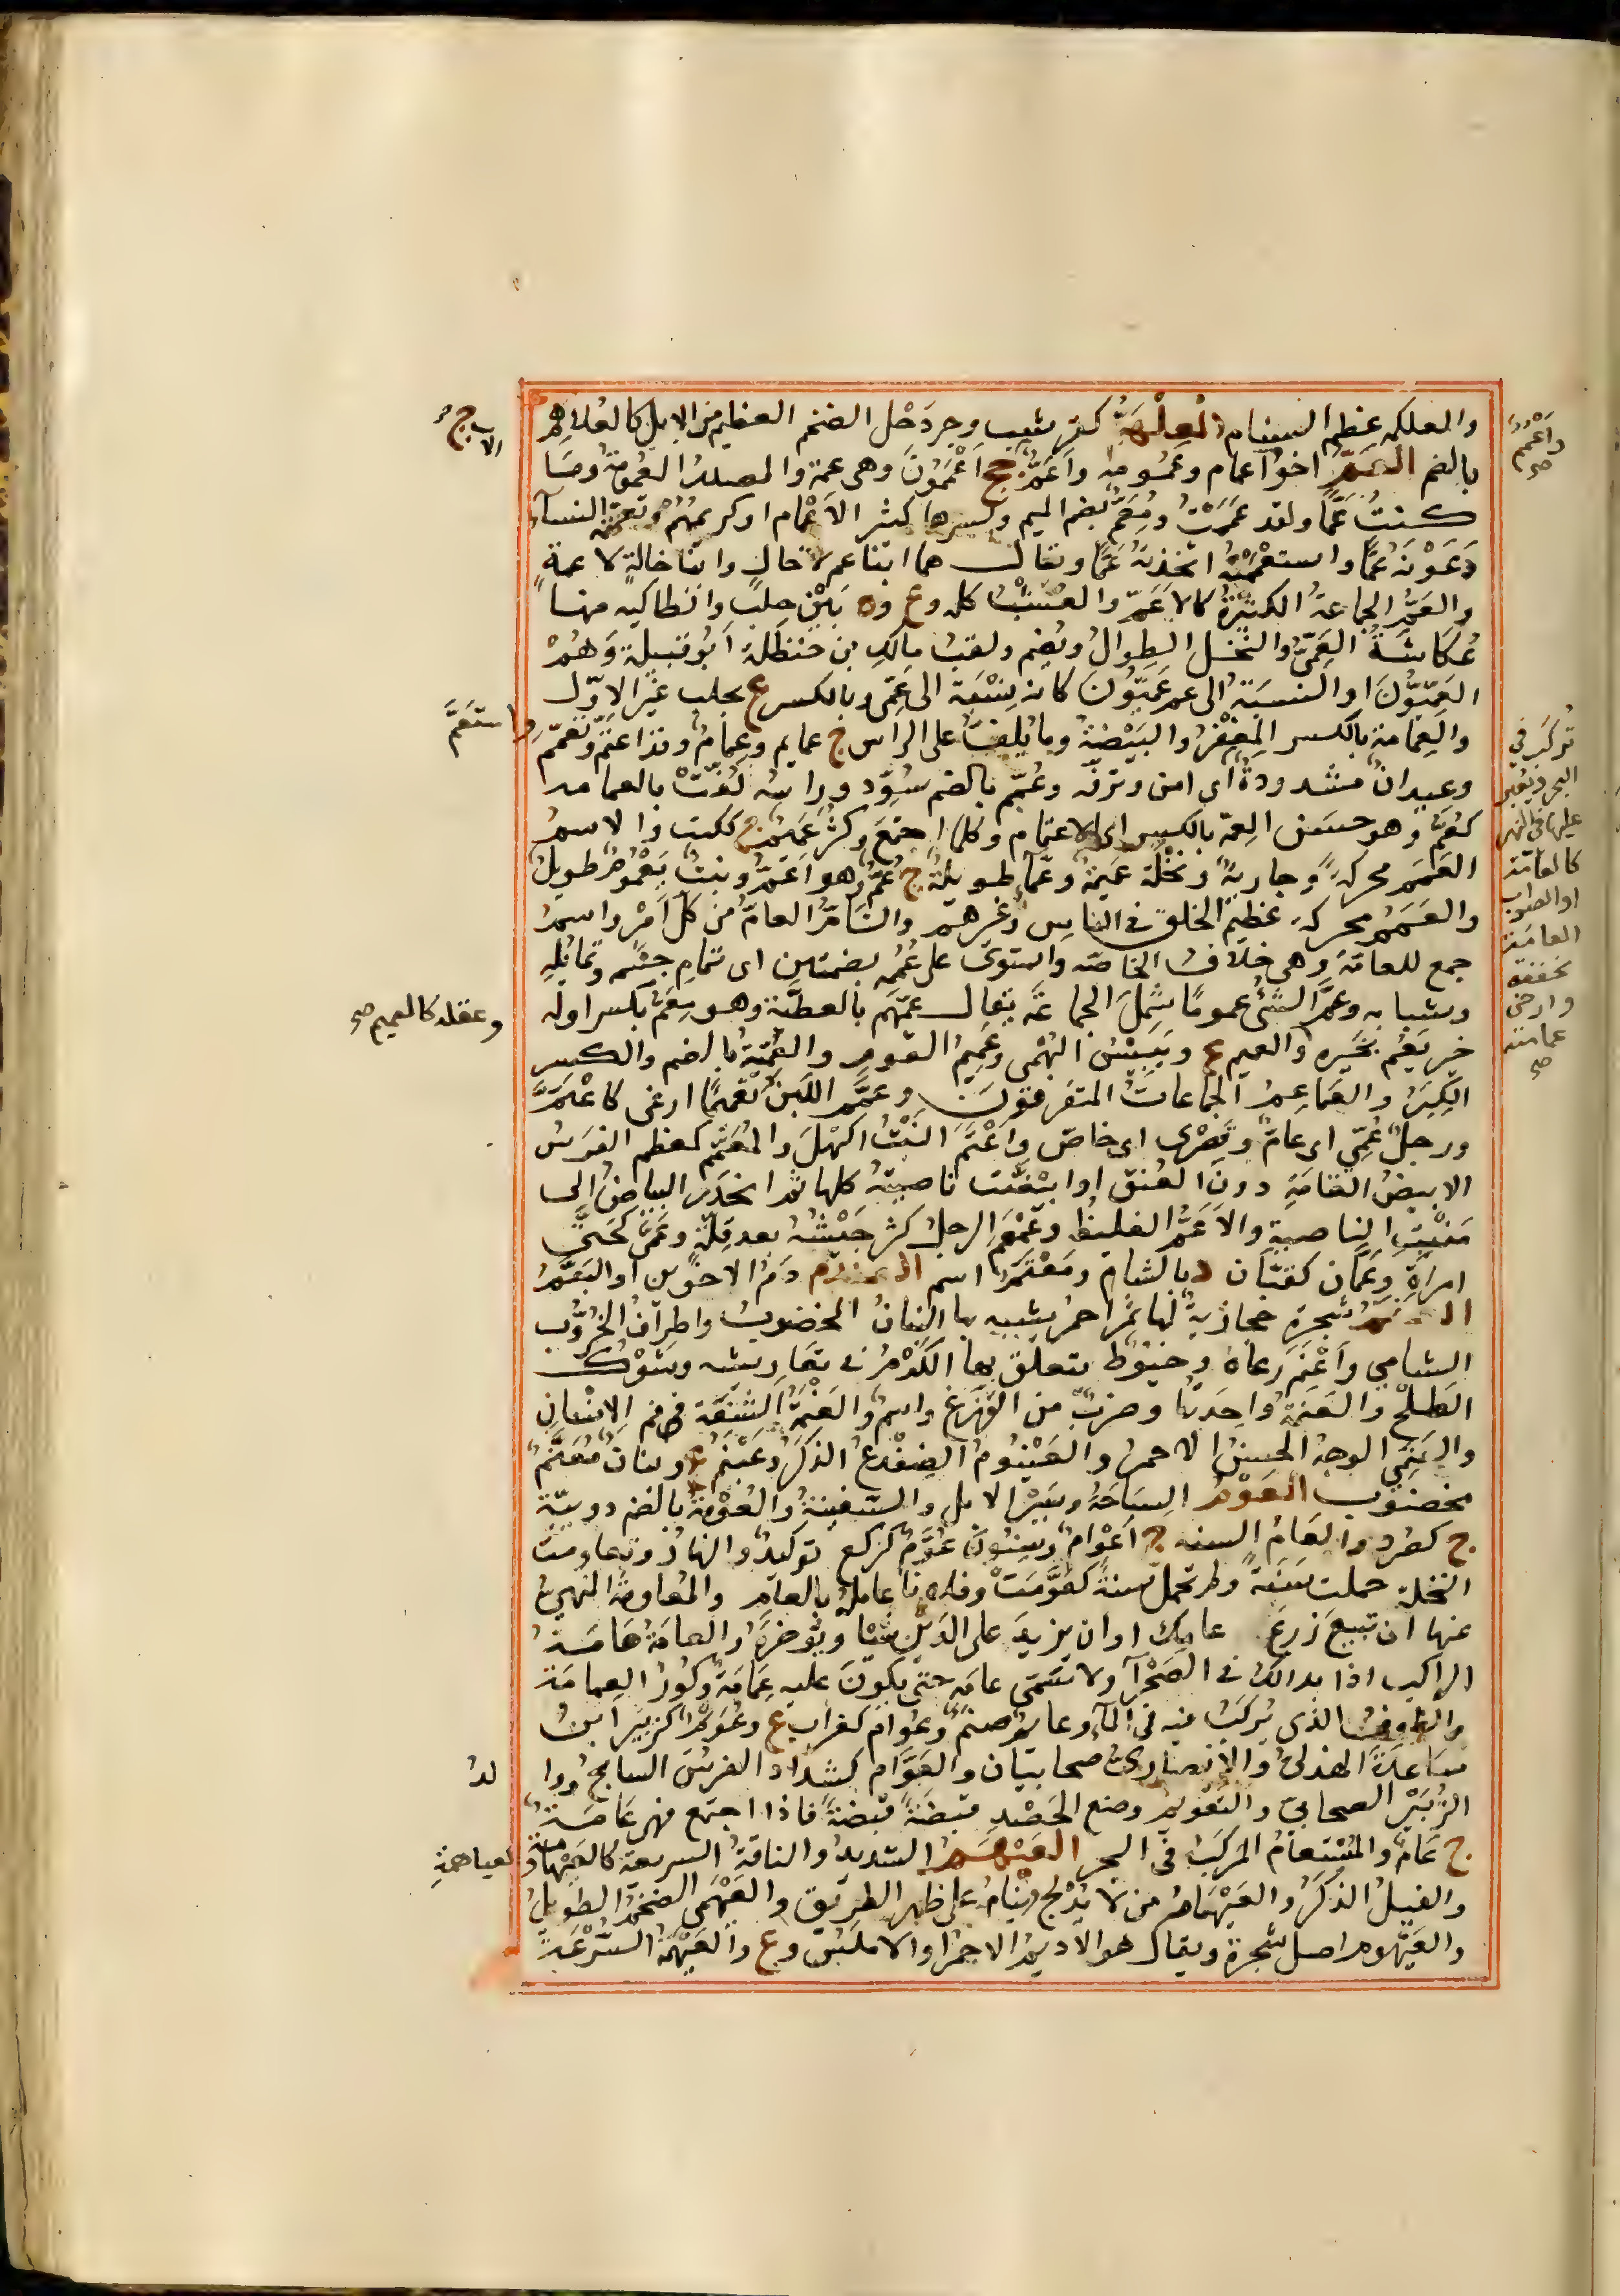 والعلكم عظم السنام العِلْهَمُّ كقرشبٍ وجردَحْل الضخم العظيم من الابل كالعُلاهم
بالضم العَمُّ اخو اعمام وعمومه واَعُمٌّ جج اَعْمُمُونَ وهى عمة والمصدر العُمُومَةُ وما
كنتُ عَمًّا ولقد عَمَمْتُ ومُعَمٌّ بضم الميم وكسرها كثير الاَعْمام او كريمهُم وتعمّمته النسآء
دَعَوْنَه عَمًّا واستعمَمْتُه اتخذته عَمًّا ويقال هما ابنا عم لا خالٍ وابنا خالةٍ لا عمةٍ
والعَمُّ الجماعةُ الكثيرةُ كالاَعَمِّ والعُشْبُ كله وع وة بَيْن حلب وانطاكيه منها
عُكاشَةُ العَمِّىُّ والنخل الطِوالُ ويُضم ولقب مالكِ بن حنظلة اَبُو قبيلة وَهُمْ
العَمِّيُّونَ او النسبةُ الى عم عَمِّيُّونَ كانه نِسْبَة الى عَمِّى وبالكسر ع بحلب غَيْر الاوّل
والعِمامة بالكسر المِغْفَرُ والبَيْضَةُ وما يُلَفُّ على الراس ج عمايم وعِمامٌ وقد اعتَمَّ وتعمّم
وعيدانٌ مشدودةٌ اى امن وترفّه وعُمِّم بالضم سُوِّد وراسُه لُفَّتْ بالعمامه
كعُمَّ وهو حسَن العِمّة بالكسر اى الاعتمام وكلما اجتمَعَ وكثُر عَمِيمٌ ج ككتب والاسمُ
العَمَمُ محركه وجاريةٌ ونخْلَة عَميمَة وعَمَّآ طويلة ج عُمٌّ وهو اَعَمُّ ونبتٌ يَعْمُومٌ طويلٌ
والعَمَمُ محركه عظيم الخلق فى الناس وغيرهم والتامُّ العامُّ من كل امْر واسم
جمع للعامّة وهى خلاف الخاصه واستوى على عُمُمِه بضمتين اى تمام جسْمه وتماله
وشبابه وعَمَّ الشئُ عموماً شمِلَ الجماعَة يقال عمّهُم بالعطيَّة وهو مِعَمٌّ بكسر اوله
خير يَعُم بخَيره والعميم ع ويَبيسُ البُهْمى وعَميمُ القوم والعُمِّيَّةُ بالضم والكسر
الكِبْرُ والعَمَاعِمُ الجماعاتُ المتفرقونَ وعَمَّم اللبَنُ تَعْميمًا ارغى كاعْتَمَّ
ورجلٌ عُمِّىٌّ اى عامٌّ وقُصْرى اى خاصّ واعْتَمَّ النَبْتُ اكْتهَلَ والمُعَمَّم كمعظم الفرَسُ
الابيضُ الهَامَةِ دونَ العُنق او ابيَضَّت ناصيتُه كلها ثم انحدر البياضُ الى
مَنْبِتِ الناصية والاَعَمُّ الغليظ وعَمْعَمَ الرجلُ كثر جَيْشُه بعد قِلَّة وعَمَّى كحَتَّى
امراَة وعَمَّان كقبَّان د بالشام ومعْتمٌّ اسم العندم دَمُ الاخوين او البَقَّمُ
العنم شجرةٌ حجازيةٌ لها ثمر احمر يشبه بها البَنانُ المخضوب واطرافُ الخَرُّوب
الشامي واَعْنَم رعاهُ وخيوط يتعلق بها الكَرْمُ فى تعاريشه وشوك
الطَلْح والعَنَمَةُ واحدَتُها وضربٌ من الوَزَغ واسم والعَنْمَةُ الشَقَّة فى فم الانسان
والعَنَمِىُّ الوجهُ الحسنُ الاحمر والعَيْنُومُ الضفْدعُ الذكَرُ وعَيْنَم ع وبنانٌ مُعَنَّمٌ
مخضوب العَوْمُ السِبَاحَةُ وسَيْرُ الابل والسفينةِ والعُوْمَةُ بالضم دويبّة
ج كصُرد والعَامُ السنه ج اَعْوامٌ وسِنُونَ عُوَّمٌ كركّع توكيدٌ والنهارُ وعاومت
النخلة حملت سَنَةً ولم تحمل سنةً كعَوَّمَتْ وفلاناً عامله بالعام والمُعاومةُ المنهىُّ
عنها ان تبيعَ زرعَ عامِك او ان يزيدَ على الدَيْن شيئًا ويُؤَخرَه والعامَة هَامَةُ
الراكب اذا بدالك فى الصَحْرَآء ولا تسَمّى عامَة حتى يكونَ عليه عِمَامَة وكَوْرُ العِمامَة
والطوفُ الذى يُركَبُ فيه فى المآء وعائمٌ صنمٌ وعُوام كغراب ع وعُوَيْم كزبَير ابنُ
سَاعِدَةَ الهذلىُّ والانصارىُّ صحابيّان والعَوَّام كشداد الفرسُ السابح ووالدُ
الزُبَيْر الصحابىّ والتعْويمُ وضع الحَصْدِ قبضةً قبضةً فاذا اجتمع فهى عَامَة
ج عَامٌ والمُسْتعامُ المركبُ فى البحر العَيْهَمُ الشديدُ والناقة السريعة كالعَيْهَامة والعياهمة
والفيلُ الذكَرُ والعَيْهَامُ من لا يُدْلج وينامُ على ظهر الطريق والعَيْهَمى الضخْمُ الطويلُ
والعَيْهوم اصل شجرة ويقال هو الاديمُ الاحمر او الاملسُ وع والعَيْهَمَةُ السُرْعَةُ
وَاَعْمُمٌ صح
واستَعَمَّ
تُركَب فى
البحر ويُعبر
عليها فى النهر
كالعامّة
او الصواب
العامَة
مخففة
وارض
عمامة
صح
وعقله كالعميم صح